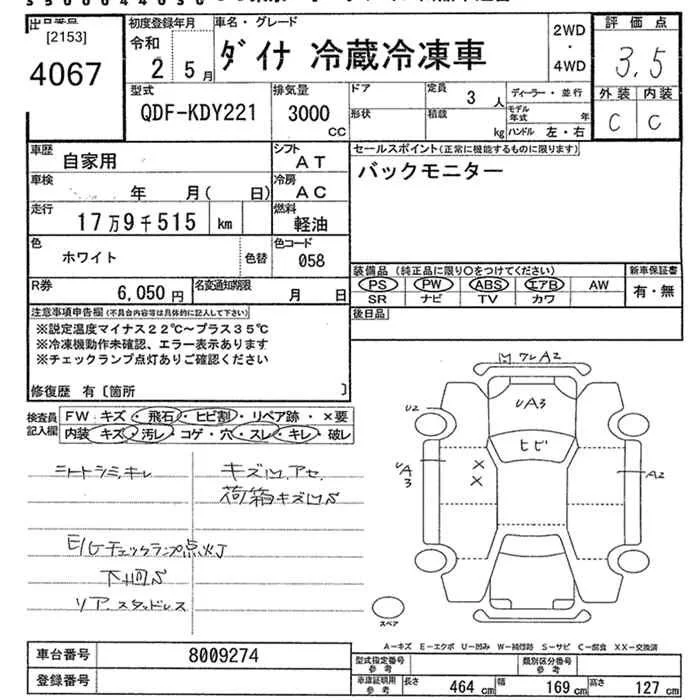 出品番号
[2153]
4067
初度登録年月
令和
2 5月
車名・グレード
ダイナ 冷蔵冷凍車
2WD
・
4WD
評価点
3.5
外装 内装
C C
型式
QDF-KDY221
排気量
3000
CC
ドア
定員
3人
ディーラー・並行
形状
積載
kg
モデル年式
年
ハンドル 左・右
車歴
自家用
シフト
AT
車検
年 月( 日)
冷房
AC
走行
17万9千515 km
燃料
軽油
色
ホワイト
色替
色コード
058
R券
6,050円
名変通知期限
月 日
セールスポイント(正常に機能するものに限ります)
バックモニター
装備品 (純正品に限り○をつけてください)
PS PW ABS エアB AW
SR ナビ TV カワ
新車保証書
有・無
後日品
注意事項申告欄(不具合内容等は具体的に記入して下さい)
※設定温度マイナス22℃～プラス35℃
※冷凍機動作未確認、エラー表示あります
※チェックランプ点灯ありご確認ください
修復歴 有〔箇所 〕
検査員
記入欄
FW キズ・飛石・ヒビ割・リペア跡・×要
内装 キズ・汚レ・コゲ・穴・スレ・キレ・破レ
シートトラミ、キレ
キズ凹、アセ
荷箱キズ凹S
E/Gチェックランプ点灯
下回S
リア スタッドレス
凹 ワレ A2
UA3
U2
ヒビ
UA3
×
×
A2
スペア
A-キズ E-エクボ U-凹み W-補修跡 S-サビ C-腐食 XX-交換済
車台番号
8009274
登録番号
型式指定番号
参考
類別区分番号
参考
車庫証明用
参考
長さ 464cm 幅 169cm 高さ 127cm